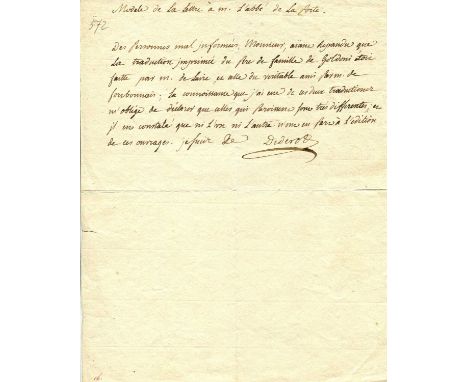 Modele de La Lettre à m. L'abbé de La Porte.
572
Des personnes mal informées, Monsieur, aiant repandu que
La traduction imprimée du Pere de famille de Goldoni etoit
faite par m. de Leire et celle du veritable ami par m. de
forbonnais. La connoissance que j'ai eue de ces deux traductions
m'oblige de declarer que celles qui paroissent sont très differentes, et
il est constant que ni L'un ni L'autre n'ont eu part à L'edition
de ces ouvrages. je suis &c Diderot